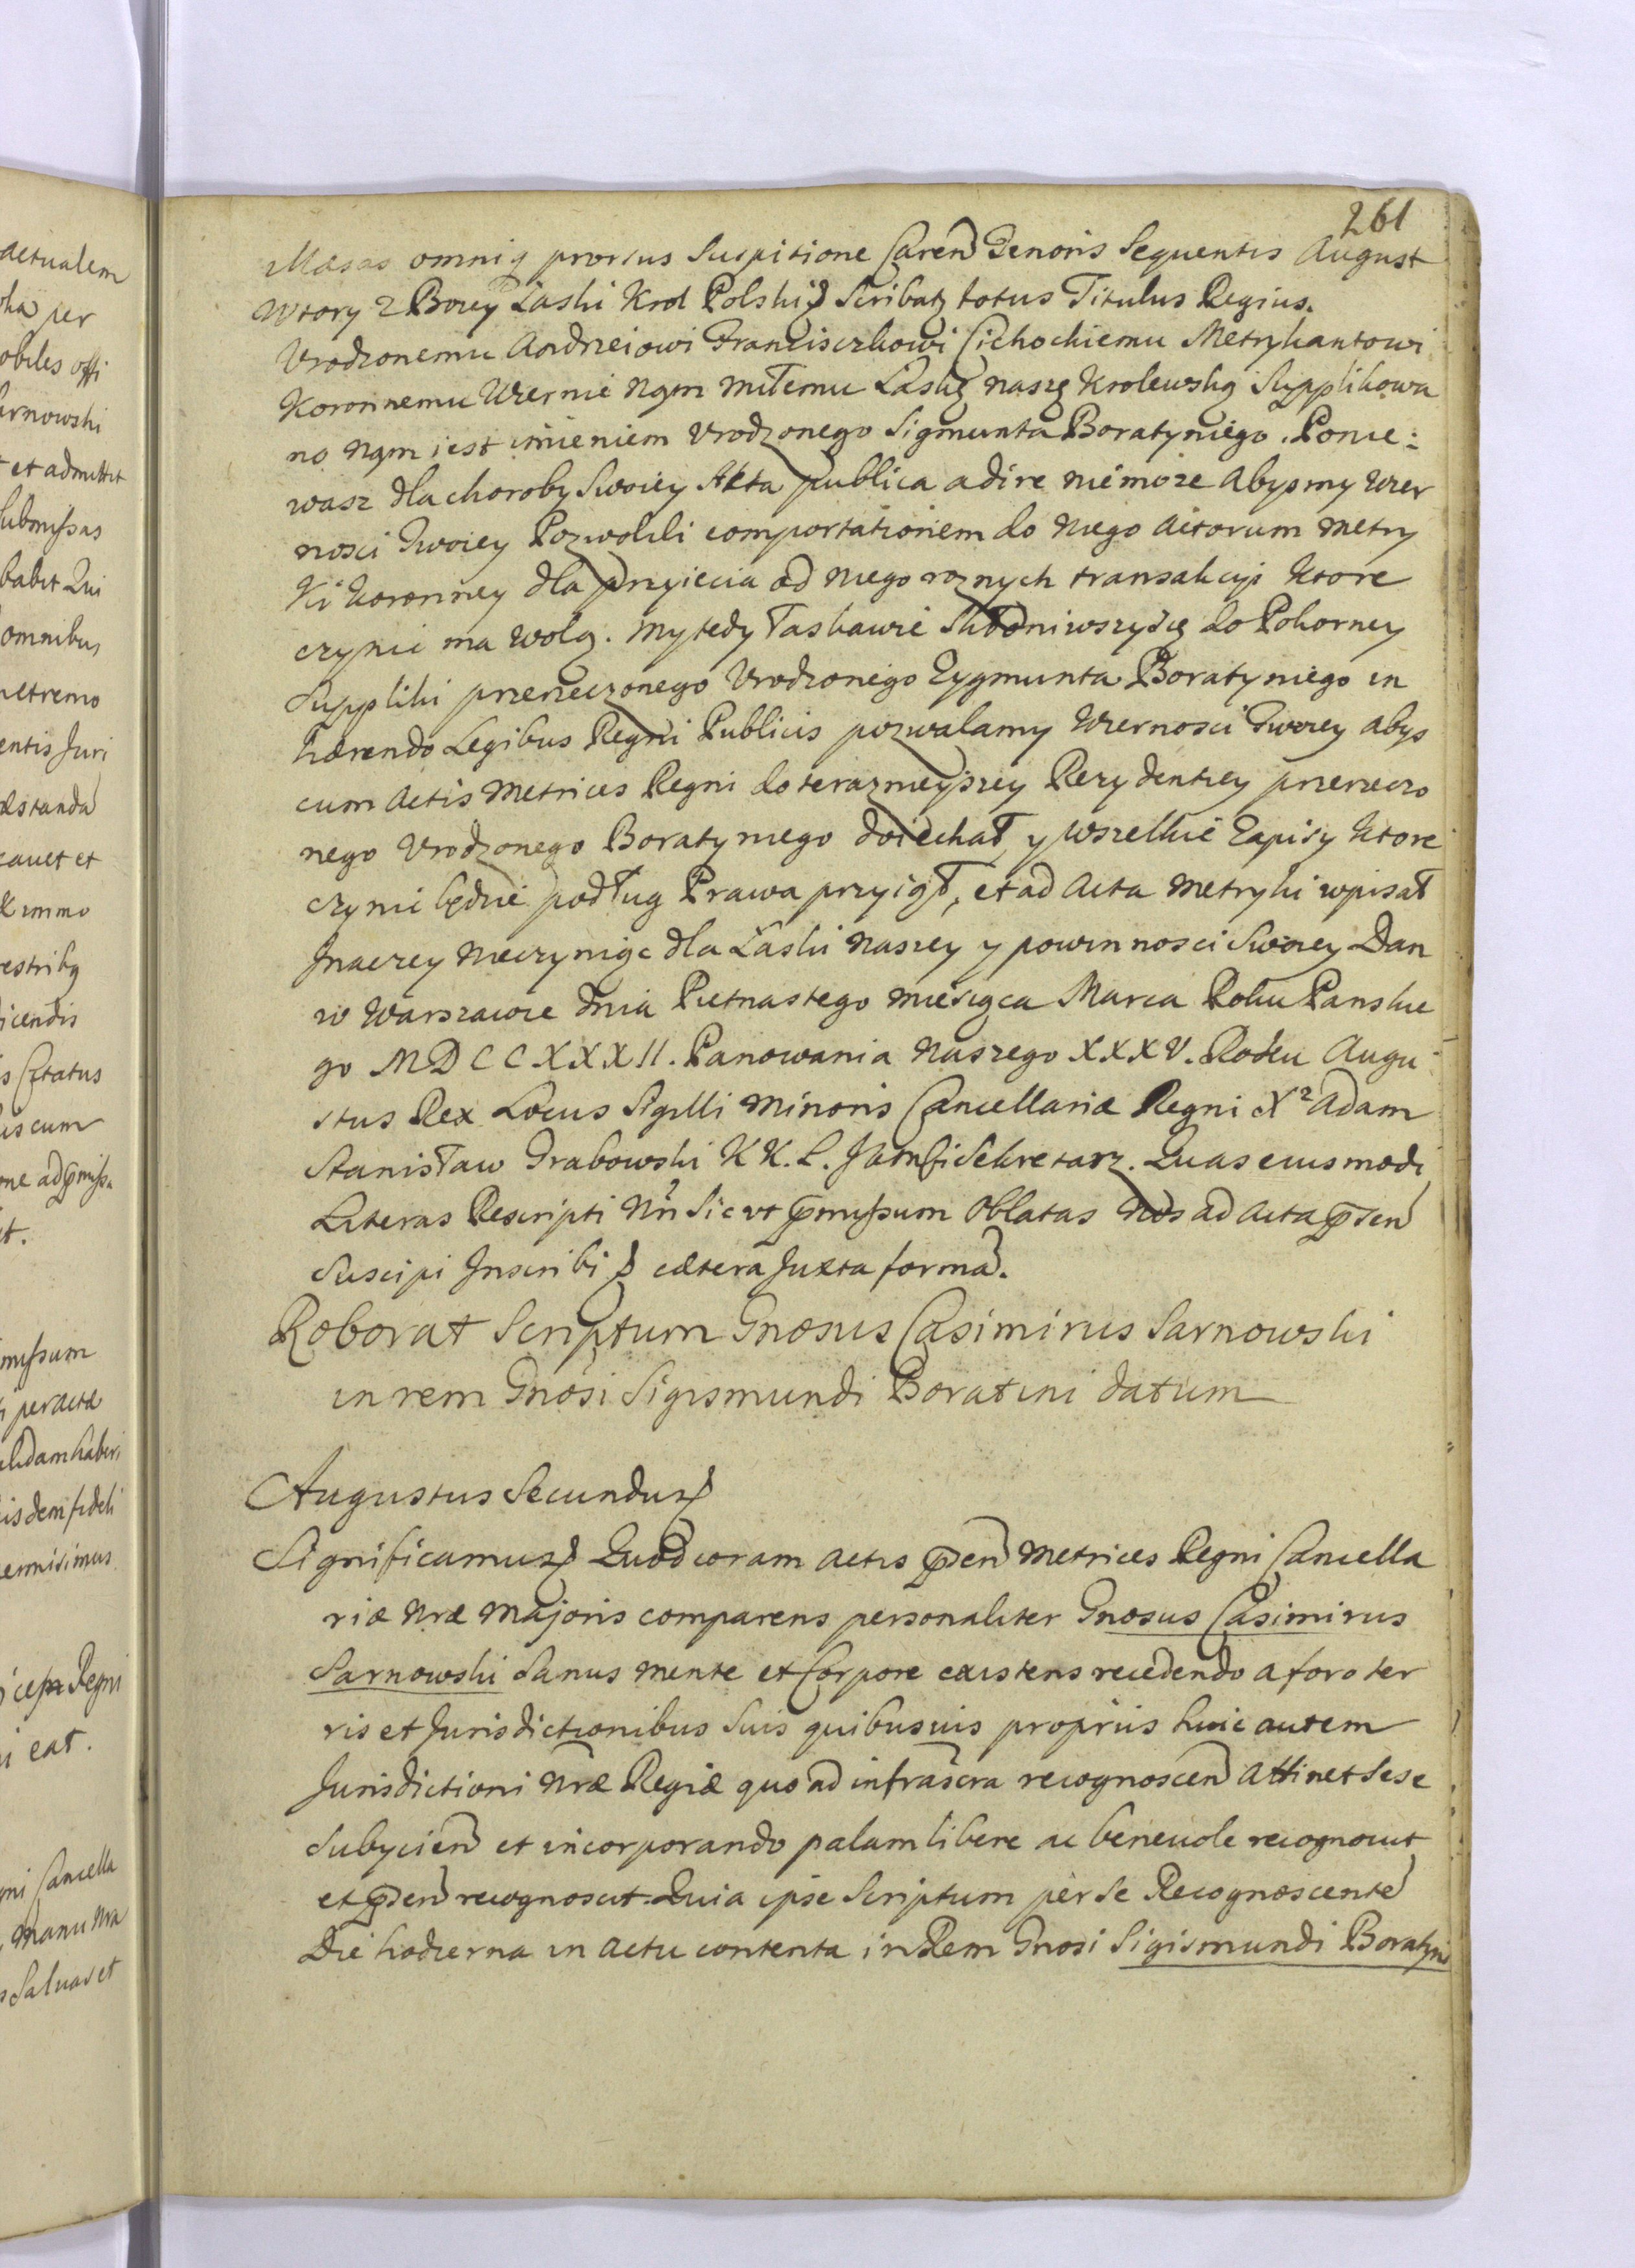 261
Maesas omniq prorsus Suspitione Caren Tenoris Sequentis August
Wtory z Bozey Łaski Krol Polski Scribatz totus Titulus Regius.
Vrodzonemu Andrzeiowi Franciszkowi Cichockiemu Metrykantowi
Koronnemu Wiernie Nąm miłemu Łaskę naszę Krolewską Supplikowa
no Nąm iest imieniem Vrodzonego Sigmunta Boratyniego. Ponie:
wasz dla choroby Swoiey Akta publica adire niemoze Abysmy Wier
nosci Twoiey Pozwolili comportationem do Niego Actorum Metry
Ki Koronney dla przyiecia od Niego roznych transakcyi Ktore
czynic ma wolą. My tedy łaskawie Skłoniwszysię do Pokorney
Suppliki przerzeczonego Vrodzonego Zygmunta Boratyniego in
hærendo Legibus Regni Publicis pozwalamy Wiernosci Twoiey abys
cum Actis Metrices Regni do terazmieyszey Rezydentiey przerzeczo
nego Vrodzonego Boratyniego doiechał, y Wszelkie Zapisy Ktore
czynic będzie podług Prawa przyiął, et ad Acta Metryki wpisał
Inaczey Nieczyniąc dla Łaski Naszey y powinnosci Swoiey Dan
w Warszawie Dnia Pietnastego Miesiąca Marca Roku Panskie
go MDCCXXXII. Panowania Naszego XXXV. Roku Augu
stus Rex Locus Sigilli Minoris Cancellariæ Regni X² Adam
Stanisław Grabowski K K. L. Sekretarz. Quas eiusmodi
Literas Rescripti Nri Sic vt pmissum Oblatas Nos ad Acta psen
Suscipi Inscribi cætera Juxta forma.
Roborat Scriptum Gnosus Casimirus Sarnowski
in rem Gnosi Sigismundi Boratini datum
Augustus Secundus
Significamus Quod coram Actis psen Metrices Regni Cancella
riæ Nræ Majoris comparens personaliter Gnosus Casimirus
Sarnowski Sanus Mente et Corpore existens recedendo a foro ter
ris et Jurisdictionibus Suis quibusuis propriis huic autem
Jurisdictioni Nræ Regiæ quo ad infrascra recognoscen Attinet Sese
Subycien et incorporando palam libere ac beneuole recognouit
et psen recognoscit Quia ipse Scriptum per Se Recognoscente
Die hodierna in Actu contenta in Rem Gnosi Sigismundi Boratyni